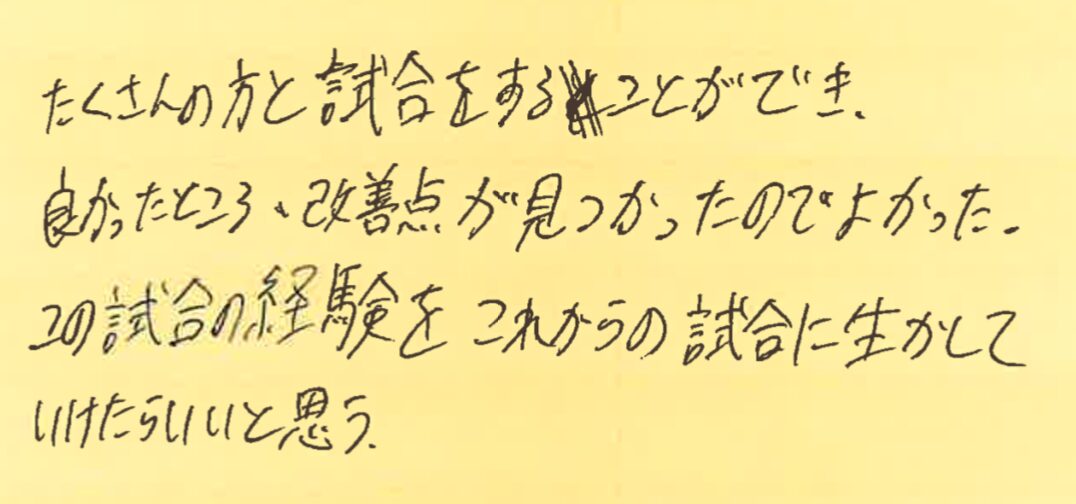 たくさんの方と試合をすることができ、
良かったところ、改善点が見つかったのでよかった。
この試合の経験をこれからの試合に生かして
いけたらいいと思う。